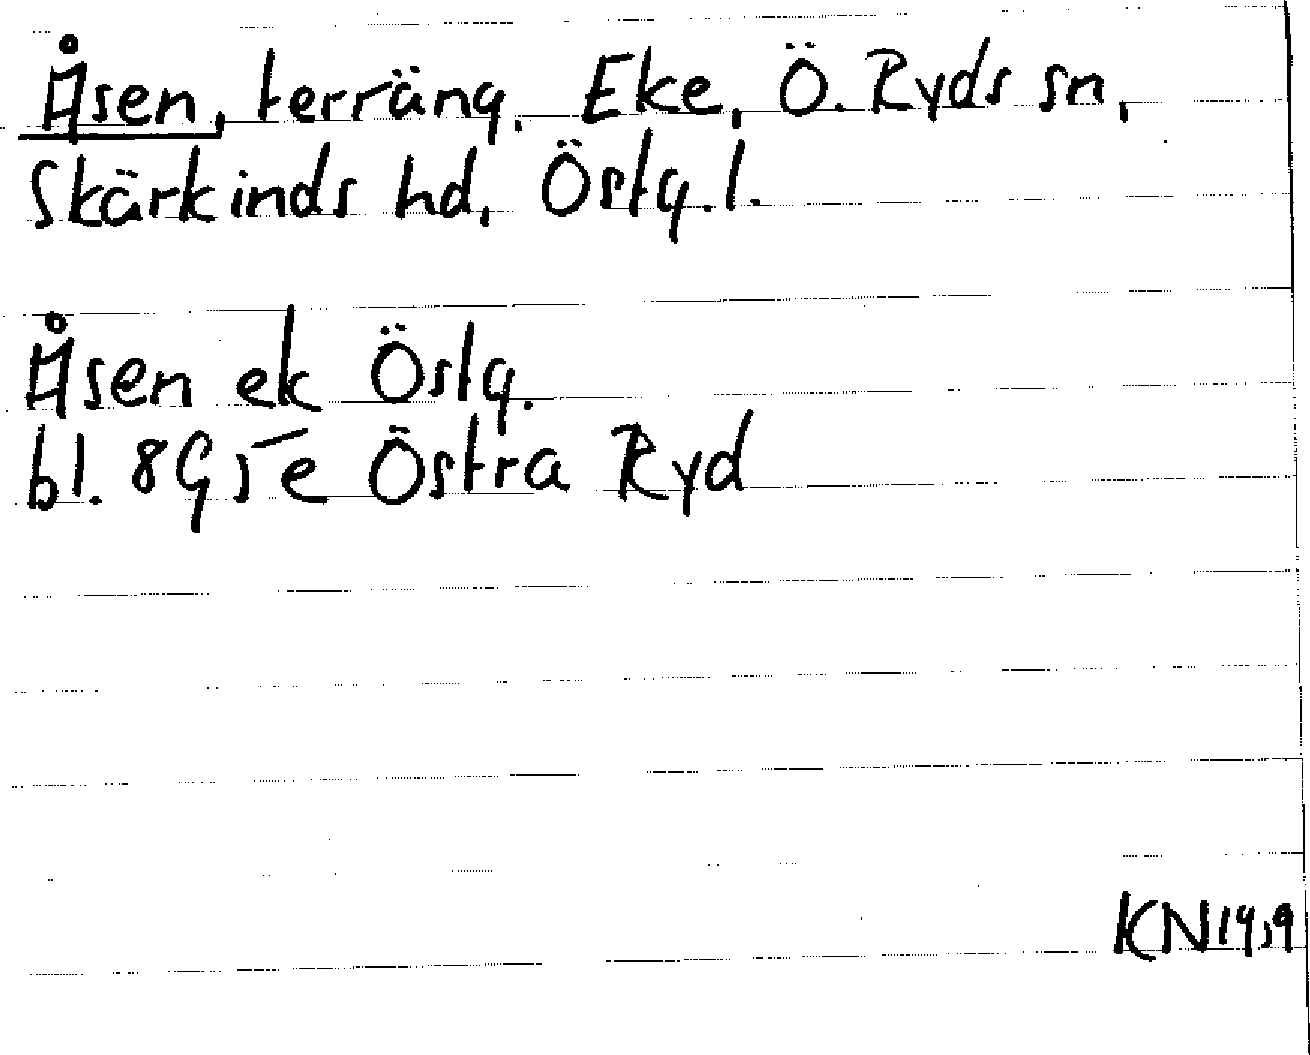 Åsen, terräng. Eke, Ö. Ryds sn,
Skärkinds hd, Östg. l.
Åsen ek Östg.
bl. 8G5e Östra Ryd